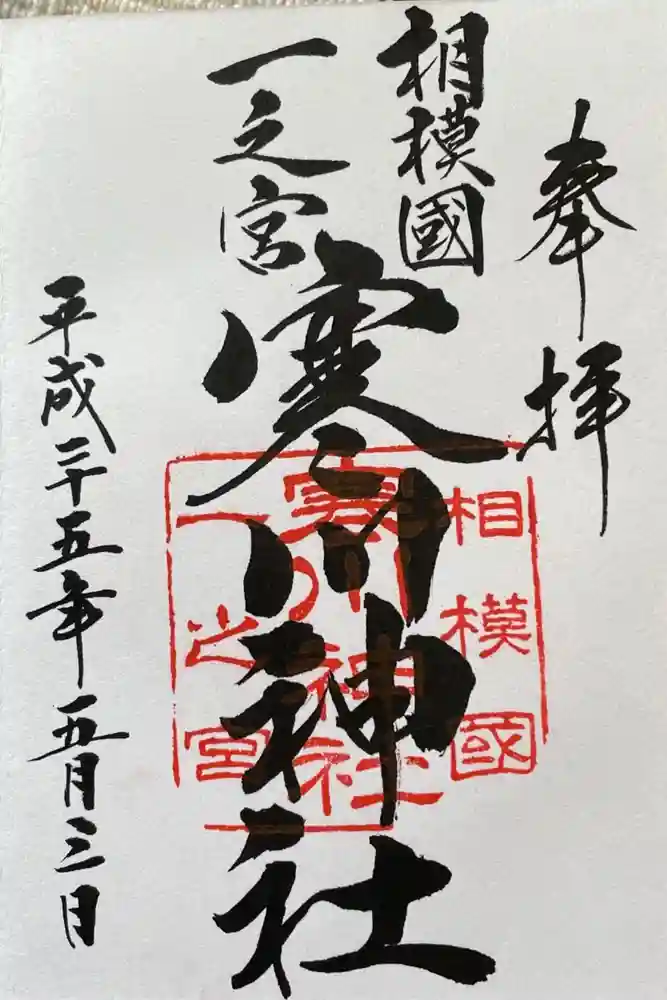 奉拝
相模國
一之宮
寒川神社
平成二十五年五月三日
相模國
寒川神社
一之宮